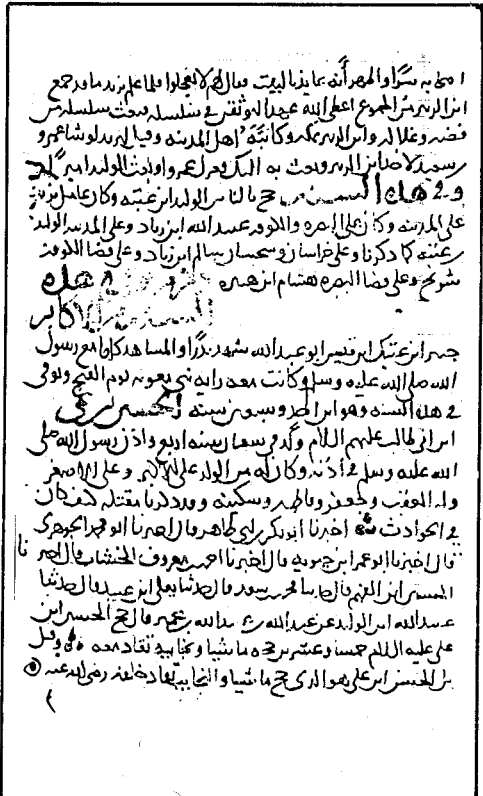 انه عائذ بالبيت وقال لهم لا تعجلوا فلما علم يزيد ما قد جمع
ابن الزبير من الجموع اعطى الله عهدا لنوثقن في سلسله فبعث سلسله من
فضه وغلا له وابن الزبير بمكه وكاتبه اهل المدينه وقيل ليزيد لو شا عمرو
سعيد لاخذ ابن الزبير وبعث به اليك فعزل عمرا وولى الوليد اميرا
وفي هذه السنه حج بالناس الوليد ابن عتبه وكان عامل يزيد
على المدينه وكان على البصره والكوفه عبيد الله ابن زياد وعلى المدينه الوليد
بن عتبه كما ذكرنا وعلى خراسان وسجستان سالم ابن زياد وعلى قضا الكوفه
شريح وعلى قضا البصره هشام ابن هبيره ذكر من توفى في هذه
السنه من الاكابر
جبر ابن عتيك ابن قيس ابو عبد الله شهد بدرا والمشاهد كلها مع رسول
الله صلى الله عليه وسلم وكانت معه رايه بني معويه يوم الفتح وتوفى
في هذه السنه وهو ابن احد وسبعين سنه الحسين بن علي
ابن ابي طالب عليهم السلام ولد في شعبان سنه اربع واذن رسول الله صلى
الله عليه وسلم في اذنه وكان له من الولد على الاكبر وعلى الاصغر
وله العقب وجعفر وفاطمه وسكينه وقد ذكرنا مقتله كيف كان
في الحوادث اخبرنا ابو بكر بن ابي طاهر قال اخبرنا ابو محمد الجوهري
قال اخبرنا ابو عمر ابن حيويه قال اخبرنا احمد بن معروف الخشاب قال اخبرنا
الحسين ابن الفهم قال حدثنا محمد بن سعد قال حدثنا يعلى ابن عبيد قال حدثنا
عبيد الله ابن الوليد عن عبد الله بن عبيد الله بن عمير قال حج الحسين ابن
على عليه السلام خمسا وعشرين حجه ماشيا ونجائبه تقاد معه وقيل
بل الحسن ابن على هو الذي حج ماشيا والنجائب تقاد معه رضى الله عنه